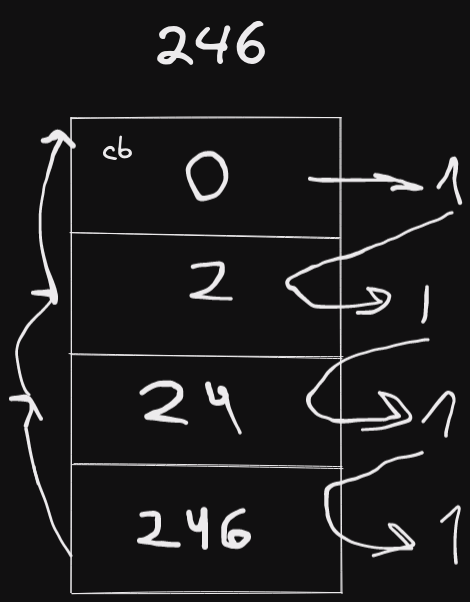 246
cb
0 1
2 1
24 1
246 1